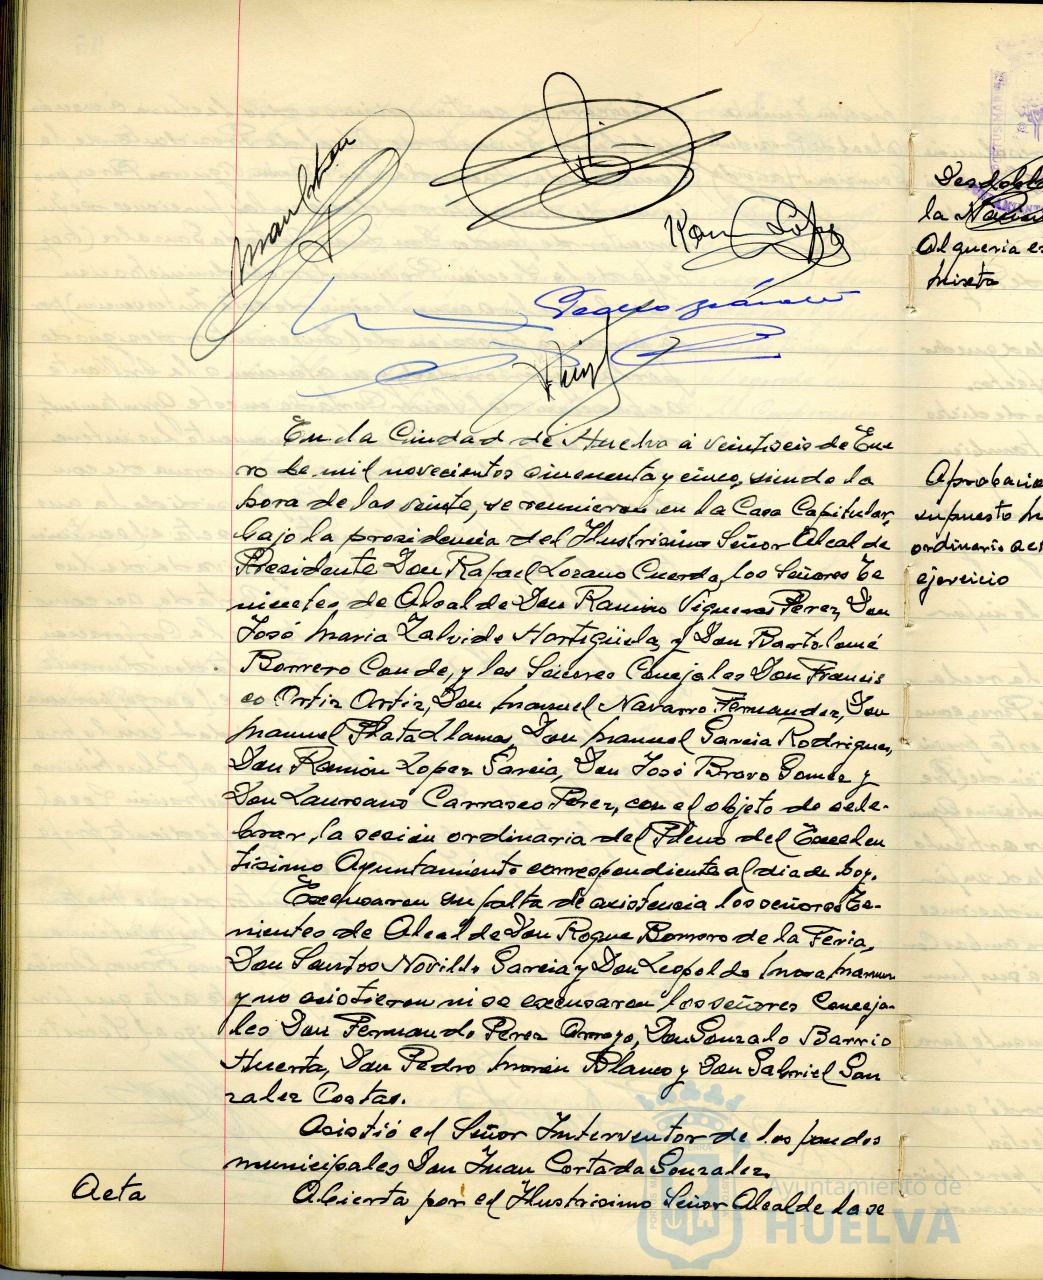 Ramón López
En la Ciudad de Huelva á veintiseis de Ene-
ro de mil novecientos cincuenta y cinco, siendo la
hora de las veinte, se reunieron en la Casa Capitular,
bajo la presidencia del Ilustrisimo Señor Alcalde
Presidente Don Rafael Lozano Cuerda, los Señores Te
nientes de Alcalde Don Ramiro Vigueras Perez, Don
José Maria Zalvide Hortigüela, y Don Bartolomé
Borrero Conde, y los Señores Concejales Don Francis
co Ortiz Ortiz, Don Manuel Navarro Fernandez, Don
Manuel Plata Llamas, Don Manuel Garcia Rodriguez,
Don Ramón Lopez Garcia, Don José Bravo Gomez y
Don Laureano Carrasco Perez, con el objeto de cele-
brar la sesión ordinaria del Pleno del Excelen
tisimo Ayuntamiento correspondiente al dia de hoy.
Excusaron su falta de asistencia los señores Te-
nientes de Alcalde Don Roque Borrero de la Feria,
Don Santos Novillo Garcia y Don Leopoldo Mora
y no asistieron ni se excusaron los señores Conceja-
les Don Fernando Perez Arroyo, Don Gonzalo Barrio
Huerta, Don Pedro Morón Blanco y Don Gabriel Gon
zalez Costas.
Asistió el Señor Interventor de los fondos
municipales Don Juan Cortada Gonzalez.
Acta
Abierta por el Ilustrisimo Señor Alcalde la se
la
Alqueria es
Miseta
Aprobacio
supuesto Mu
ordinario de
ejercicio
Ayuntamiento de
HUELVA